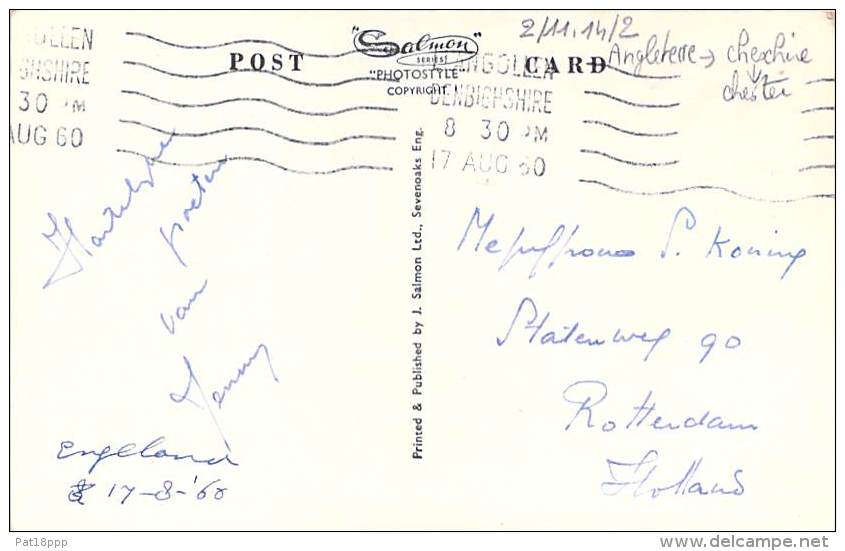 2/11.14/2
Angleterre → cheschire
↓
chester
POST CARD
"Salmon"
SERIES
"PHOTOSTYLE"
COPYRIGHT
OLLEN
GHSHIRE
30 PM
AUG 60
LANGOLLEN
DENBIGHSHIRE
8 30 PM
17 AUG 60
Printed & Published by J. Salmon Ltd., Sevenoaks Eng.
Hartelijke
groeten
van
Jenny
Engeland
17-8-'60
Mejuffrouw S. Koning
Statenweg 90
Rotterdam
Holland
Pat18ppp
delcampe.net